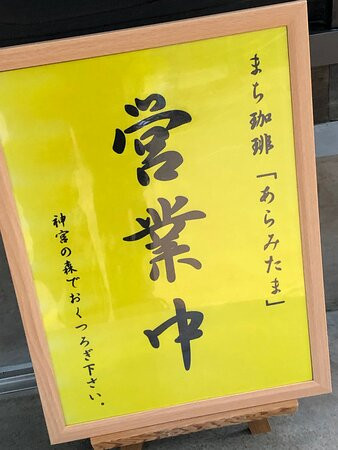 まち珈琲「あらみたま」
営業中
神宮の森でおくつろぎ下さい。